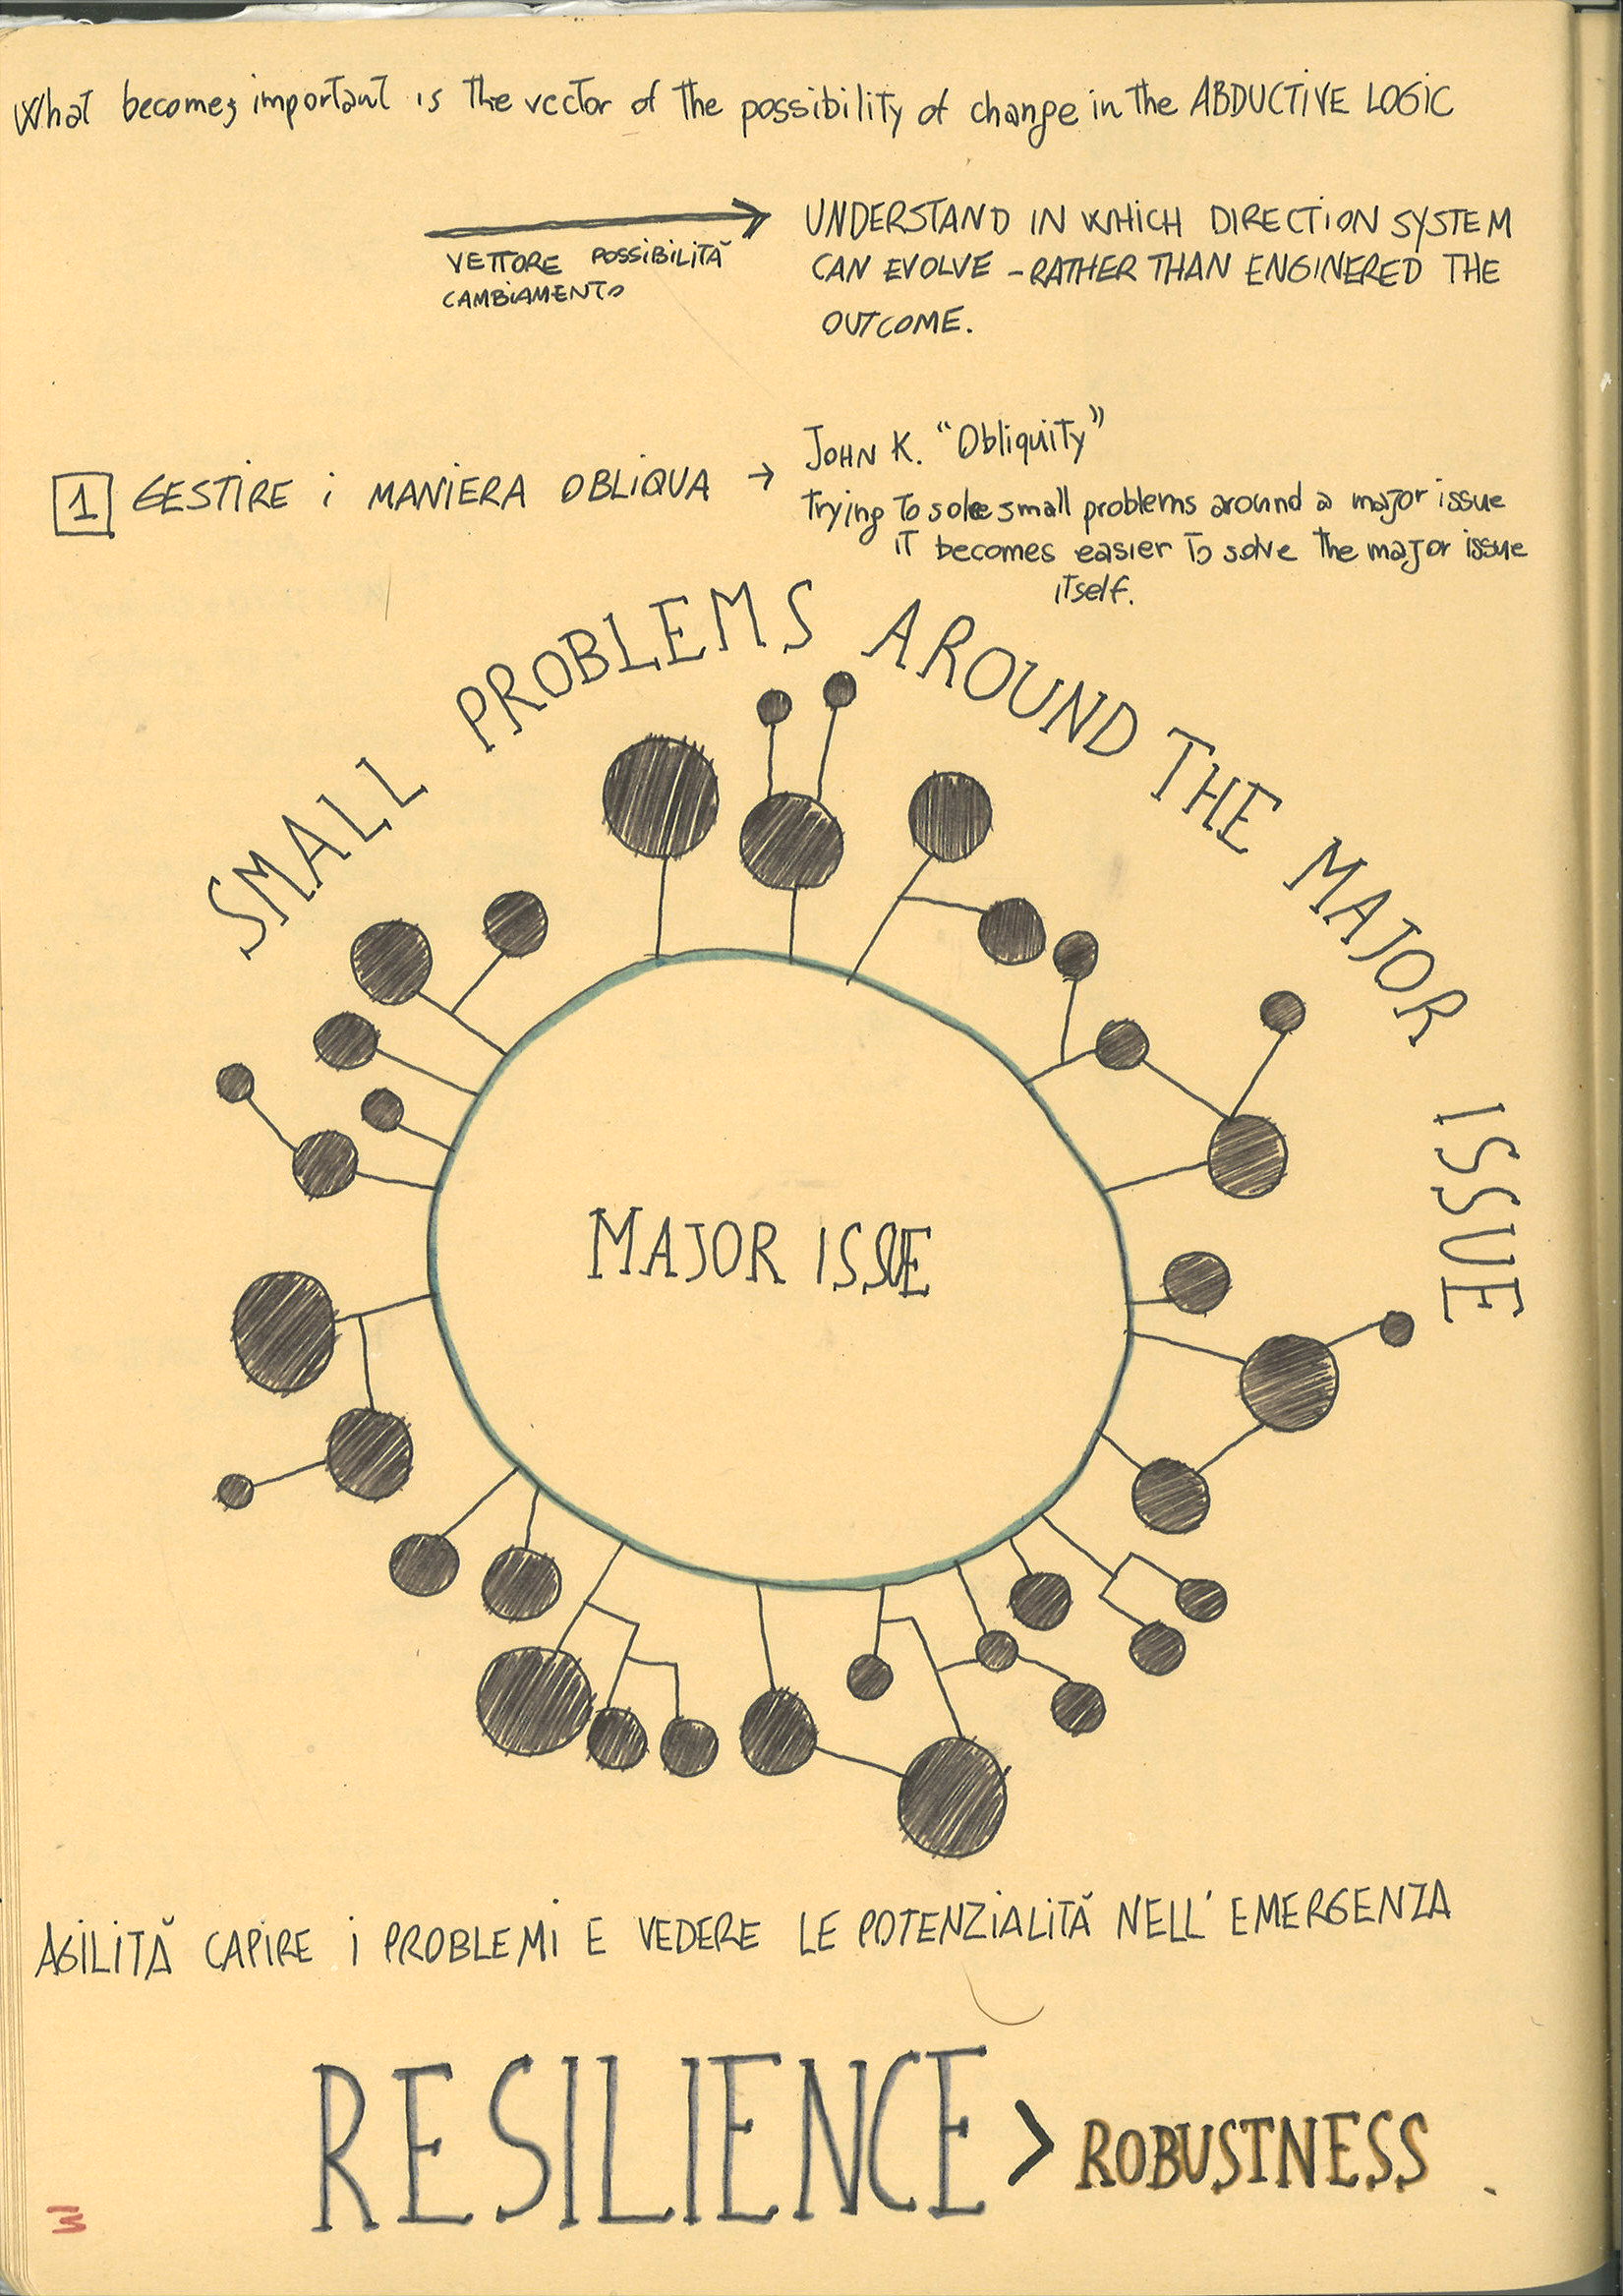 What becomes important is the vector of the possibility of change in the ABDUCTIVE LOGIC
VETTORE POSSIBILITĂ
CAMBIAMENTO
UNDERSTAND IN WHICH DIRECTION SYSTEM
CAN EVOLVE - RATHER THAN ENGINERED THE
OUTCOME.
1 GESTIRE i MANIERA OBLIQUA →
JOHN K. "Obliquity"
trying to solve small problems around a major issue
IT becomes easier to solve the major issue
itself.
SMALL PROBLEMS AROUND THE MAJOR ISSUE
MAJOR ISSUE
AGILITĂ CAPIRE i PROBLEMi E VEDERE LE POTENZIALITĂ NELL' EMERGENZA
RESILIENCE > ROBUSTNESS.